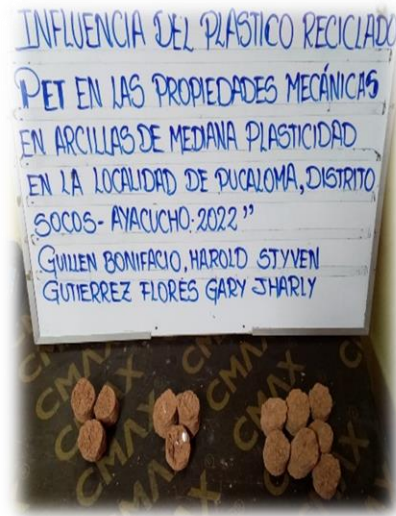 INFLUENCIA DEL PLASTICO RECICLADO
PET EN LAS PROPIEDADES MECÁNICAS
EN ARCILLAS DE MEDIANA PLASTICIDAD
EN LA LOCALIDAD DE PUCALOMA, DISTRITO
SOCOS - AYACUCHO - 2022"
GUILLEN BONIFACIO, HAROLD STYVEN
GUTIERREZ FLORES GARY JHARLY
CMAX
CMAX
CMAX
CMAX
CMAX
CMAX